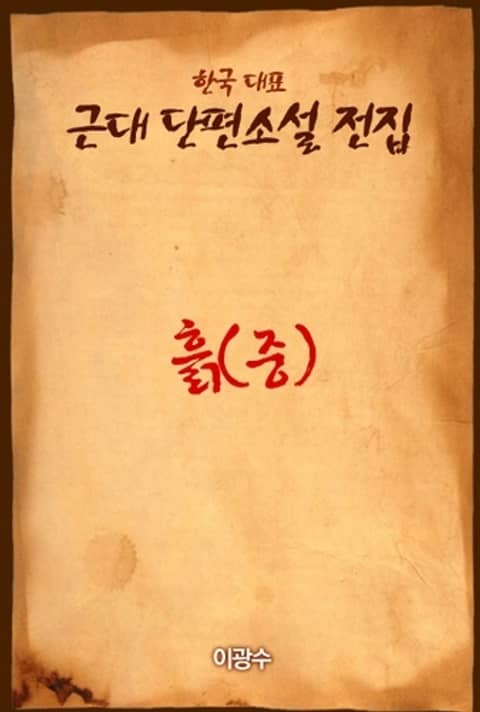 한국 대표
근대 단편소설 전집
흙(중)
이광수